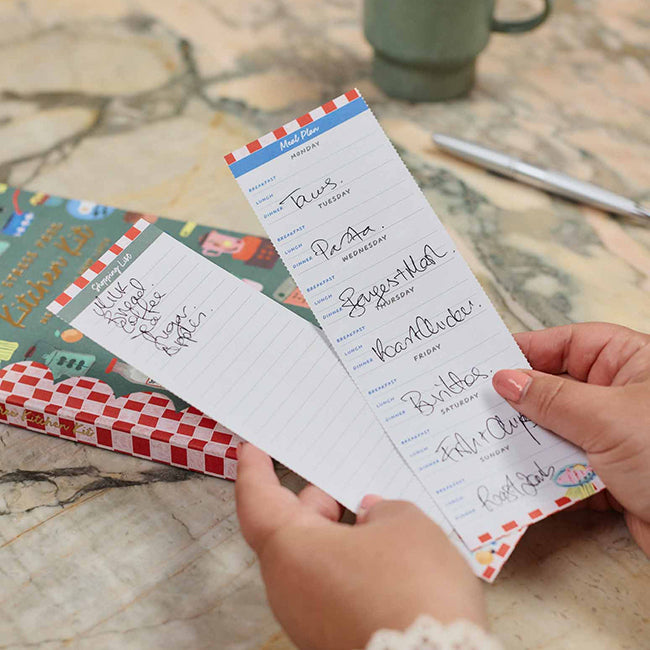 STRESS FREE
Kitchen Kit
Kitchen Kit
Shopping List
Milk
Bread
Coffee
Sugar
Meal Plan
MONDAY
BREAKFAST
LUNCH
DINNER Tacos.
TUESDAY
BREAKFAST
LUNCH
DINNER Pasta.
WEDNESDAY
BREAKFAST
LUNCH
DINNER
THURSDAY
BREAKFAST
LUNCH
DINNER Roast Chicken.
FRIDAY
BREAKFAST
LUNCH
DINNER Burritos.
SATURDAY
BREAKFAST
LUNCH
DINNER Fish + Chips.
SUNDAY
BREAKFAST
LUNCH
DINNER Roast Lamb